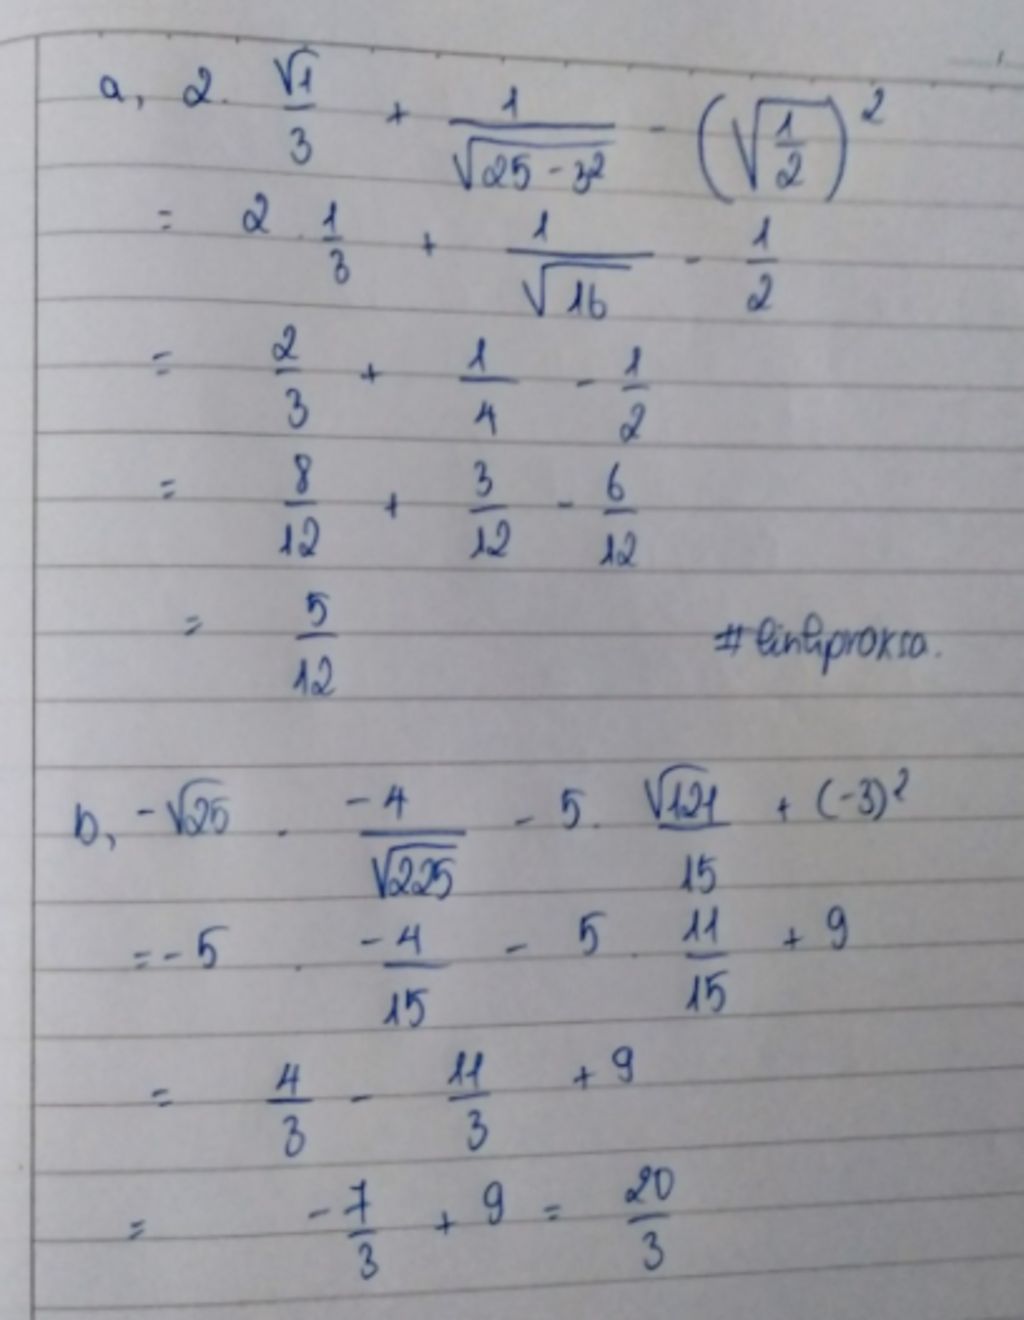 a, 2. √1/3 + 1/√(25 - 3²) - (√(1/2))²
= 2 . 1/3 + 1/√16 - 1/2
= 2/3 + 1/4 - 1/2
= 8/12 + 3/12 - 6/12
= 5/12
b, -√25 . -4/√225 - 5. √121/15 + (-3)²
= -5 . -4/15 - 5 . 11/15 + 9
= 4/3 - 11/3 + 9
= -7/3 + 9 = 20/3